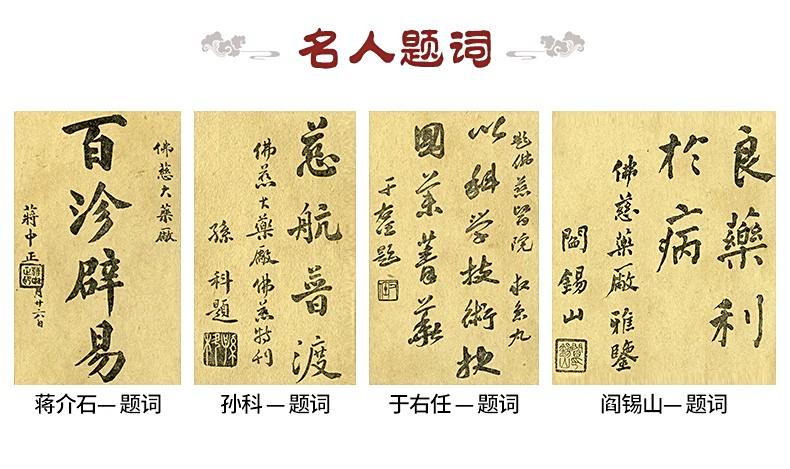 名人题词
佛慈大藥廠
百沴辟易
蔣中正
月廿六日
慈航普渡
佛慈大藥廠佛慈特刊
孫科題
題佛慈醫院
以科學技術抉
國藥菁華
于右任題
良藥利
於病
佛慈藥廠雅鑒
閻錫山
蒋介石—题词
孙科—题词
于右任—题词
阎锡山—题词